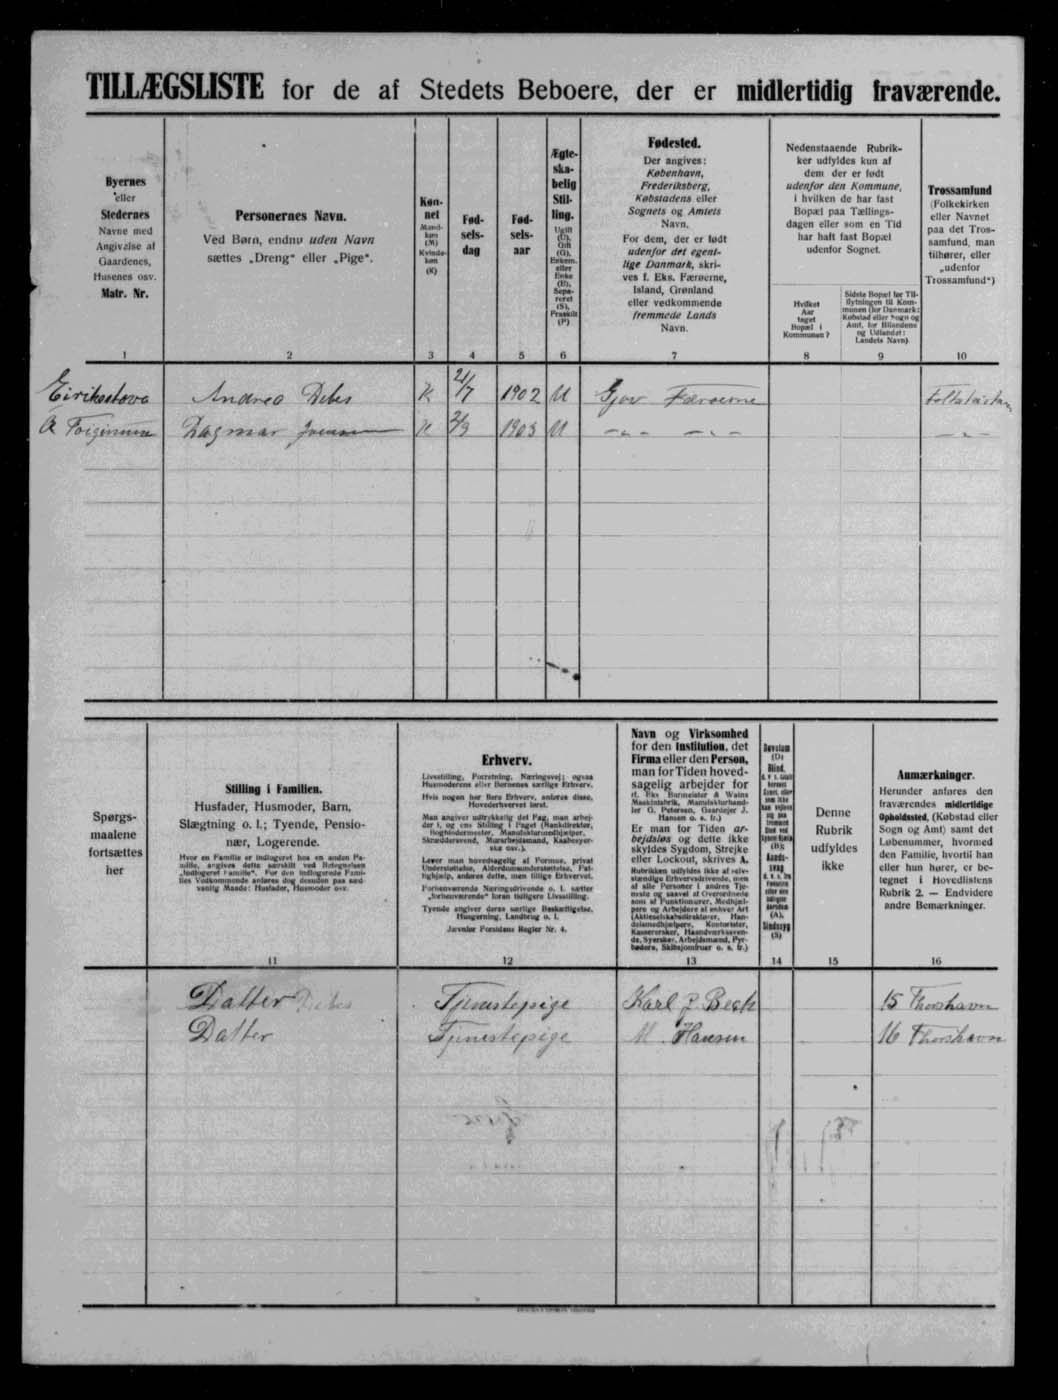 TILLÆGSLISTE for de af Stedets Beboere, der er midlertidig fraværende.
Byernes
eller
Stedernes
Navne med
Angivelse af
Gaardenes,
Husenes osv.
Matr. Nr.
Personernes Navn.
Ved Børn, endnu uden Navn
sættes „Dreng“ eller „Pige“.
Køn-
net
Mand-
køn
(M)
Kvinde-
køn
(K)
Fød-
sels-
dag
Fød-
sels-
aar
Ægte-
ska-
belig
Stil-
ling.
Ugift
(U),
Gift
(G),
Enkem.
eller
Enke
(E),
Sepa-
reret
(S),
Fraskilt
(F)
Fødested.
Der angives:
København,
Frederiksberg,
Købstadens eller
Sognets og Amtets
Navn.
For dem, der er født
udenfor det egent-
lige Danmark, skri-
ves f. Eks. Færøerne,
Island, Grønland
eller vedkommende
fremmede Lands
Navn.
Nedenstaaende Rubrik-
ker udfyldes kun af
dem der er født
udenfor den Kommune,
i hvilken de har fast
Bopæl paa Tællings-
dagen eller som en Tid
har haft fast Bopæl
udenfor Sognet.
Hvilket
Aar
taget
Bopæl i
Kommunen?
Sidste Bopæl før Til-
flytningen til Kom-
munen (for Danmark:
Købstad eller Sogn og
Amt, for Bilandene
og Udlandet:
Landets Navn)
Trossamfund
(Folkekirken
eller Navnet
paa det Tros-
samfund, man
tilhører, eller
„udenfor
Trossamfund“)
1 2 3 4 5 6 7 8 9 10
Eirikastova Andrea Debes K 21/7 1902 U Gjov Færøerne
Dagmar K 1903 U — „ — — „ — — „ —
Spørgs-
maalene
fortsættes
her
Stilling i Familien.
Husfader, Husmoder, Barn,
Slægtning o. l.; Tyende, Pensio-
nær, Logerende.
Hvor en Familie er indlogeret hos en anden Fa-
milie, angives dette særskilt ved Betegnelsen
„Indlogeret Familie“. For den indlogerede Fami-
lies Vedkommende anføres dog desuden paa sæd-
vanlig Maade: Husfader, Husmoder osv.
Erhverv.
Livsstilling, Forretning, Næringsvej; ogsaa
Husmoderens eller Børnenes særlige Erhverv.
Hvis nogen har flere Erhverv, anføres disse,
Hovederhvervet først.
Man angiver udtrykkelig det Fag, man arbej-
der i, og ens Stilling i Faget (Bankdirektør,
Bogbindermester, Manufakturmedhjælper,
Skræddersvend, Murarbejdsmand, Kaabesyer-
ske osv.).
Lever man hovedsagelig af Formue, privat
Understøttelse, Alderdomsunderstøttelse, Fat-
tighjælp, anføres dette, men tillige Erhvervet.
Forhenværende Næringsdrivende o. l. sætter
„forhenværende“ foran tidligere Livsstilling.
Tyende angiver deres særlige Beskæftigelse,
Husgerning, Landbrug o. l.
Jævnfør Forsidens Regler Nr. 4.
Navn og Virksomhed
for den Institution, det
Firma eller den Person,
man for Tiden hoved-
sagelig arbejder for
(f. Eks Burmeister & Wains
Maskinfabrik, Manufakturhand-
ler G. Petersen, Gaardejer J.
Hansen o. s. fr.)
Er man for Tiden ar-
bejdsløs og dette ikke
skyldes Sygdom, Strejke
eller Lockout, skrives A.
Rubrikken udfyldes ikke af selv-
stændige Erhvervsdrivende, men
af alle Personer i andres Tje-
neste og saavel af Overordnede
som af Funktionærer, Medhjæl-
pere og Arbejdere af enhver Art
(Aktieselskabsdirektører, Han-
delsmedhjælpere, Kontorister,
Kassererskær, Haandværkssven-
de, Syersker, Arbejdsmænd, Pyr-
bødere, Skibsjomfruer o. s. fr.)
Døvstum
(D)
Blind,
Sindssyg
(S)
Denne
Rubrik
udfyldes
ikke
Anmærkninger.
Herunder anføres den
fraværendes midlertidige
Opholdssted, (Købstad eller
Sogn og Amt) samt det
Løbenummer, hvormed
den Familie, hvortil han
eller hun hører, er be-
tegnet i Hovedlistens
Rubrik 2. — Endvidere
andre Bemærkninger.
11 12 13 14 15 16
Datter Debes Tjenestepige Karl J Beck 15 Thorshavn
Datter Tjenestepige M. Hansen 16 Thorshavn